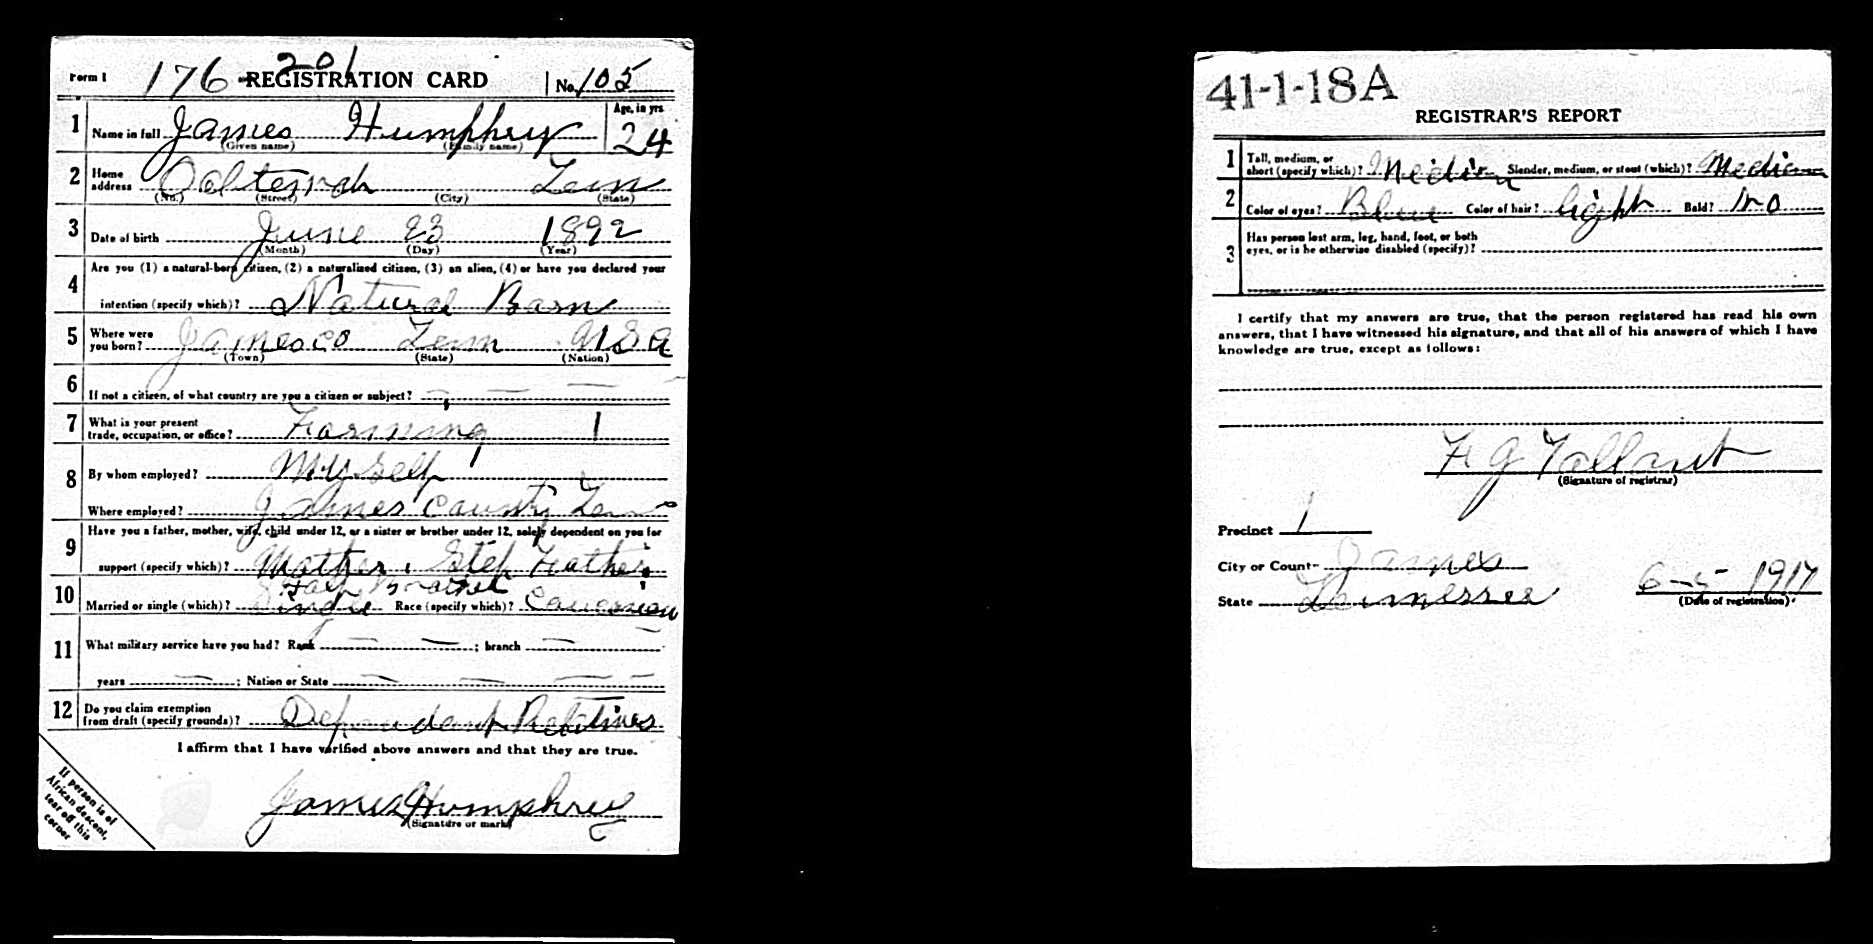 Form 1 176 201 REGISTRATION CARD No. 105
1 Name in full James Humphrey Age, in yrs. 24
(Given name) (Family name)
2 Home address Ooltewah Tenn
(No.) (Street) (City) (State)
3 Date of birth June 23 1892
(Month) (Day) (Year)
4 Are you (1) a natural-born citizen, (2) a naturalized citizen, (3) an alien, (4) or have you declared your
intention (specify which)? Natural Born
5 Where were you born? James co Tenn USA
(Town) (State) (Nation)
6 If not a citizen, of what country are you a citizen or subject?
7 What is your present trade, occupation, or office? Farming 1
8 By whom employed? My self
Where employed? James County Tenn
9 Have you a father, mother, wife, child under 12, or a sister or brother under 12, solely dependent on you for
support (specify which)? Mother, Step Father
Brother
10 Married or single (which)? Single Race (specify which)? Caucasian
11 What military service have you had? Rank ; branch
years ; Nation or State
12 Do you claim exemption from draft (specify grounds)? Dependant Relatives
I affirm that I have verified above answers and that they are true.
James Humphrey
(Signature or mark)
If person is of
African descent,
tear off this
corner
41-1-18A
REGISTRAR'S REPORT
1 Tall, medium, or short (specify which)? Medium Slender, medium, or stout (which)? Medium
2 Color of eyes? Blue Color of hair? light Bald? no
3 Has person lost arm, leg, hand, foot, or both
eyes, or is he otherwise disabled (specify)?
I certify that my answers are true, that the person registered has read his own
answers, that I have witnessed his signature, and that all of his answers of which I have
knowledge are true, except as follows:
F G Tallant
(Signature of registrar)
Precinct 1
City or County James
State Tennessee 6-5-1917
(Date of registration)